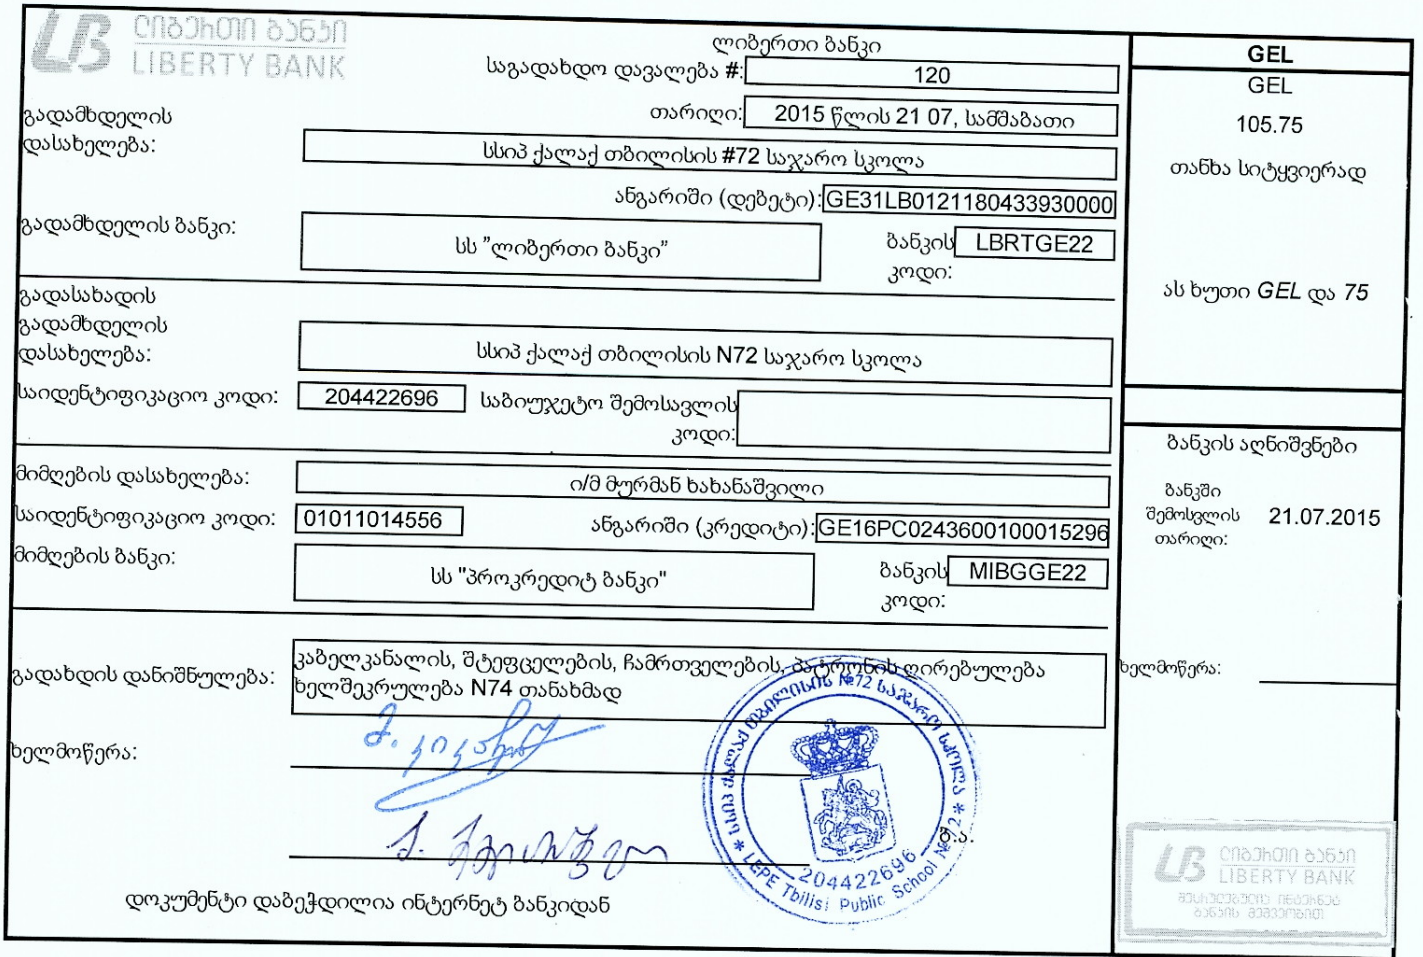 ლიბერთი ბანკი
LIBERTY BANK
ლიბერთი ბანკი
საგადახდო დავალება #: 120
თარიღი: 2015 წლის 21 07, სამშაბათი
გადამხდელის
დასახელება: სსიპ ქალაქ თბილისის #72 საჯარო სკოლა
ანგარიში (დებეტი): GE31LB0121180433930000
გადამხდელის ბანკი: სს ”ლიბერთი ბანკი” ბანკის LBRTGE22
კოდი:
გადასახადის
გადამხდელის
დასახელება: სსიპ ქალაქ თბილისის N72 საჯარო სკოლა
საიდენტიფიკაციო კოდი: 204422696 საბიუჯეტო შემოსავლის
კოდი:
მიმღების დასახელება: ი/მ მურმან ხახანაშვილი
საიდენტიფიკაციო კოდი: 01011014556 ანგარიში (კრედიტი): GE16PC0243600100015296
მიმღების ბანკი: სს "პროკრედიტ ბანკი" ბანკის MIBGGE22
კოდი:
გადახდის დანიშნულება: კაბელკანალის, შტეფცელების, ჩამრთველების, პატრონის ღირებულება
ხელშეკრულება N74 თანახმად
ხელმოწერა:
ბ.ა.
დოკუმენტი დაბეჭდილია ინტერნეტ ბანკიდან
GEL
GEL
105.75
თანხა სიტყვიერად
ას ხუთი GEL და 75
ბანკის აღნიშვნები
ბანკში
შემოსვლის 21.07.2015
თარიღი:
ხელმოწერა:
სსიპ ქალაქ თბილისის №72 საჯარო სკოლა
204422696
LEPE Tbilisi Public School №72
ლიბერთი ბანკი
LIBERTY BANK
შესრულებულია ინტერნეტ
ბანკის მეშვეობით